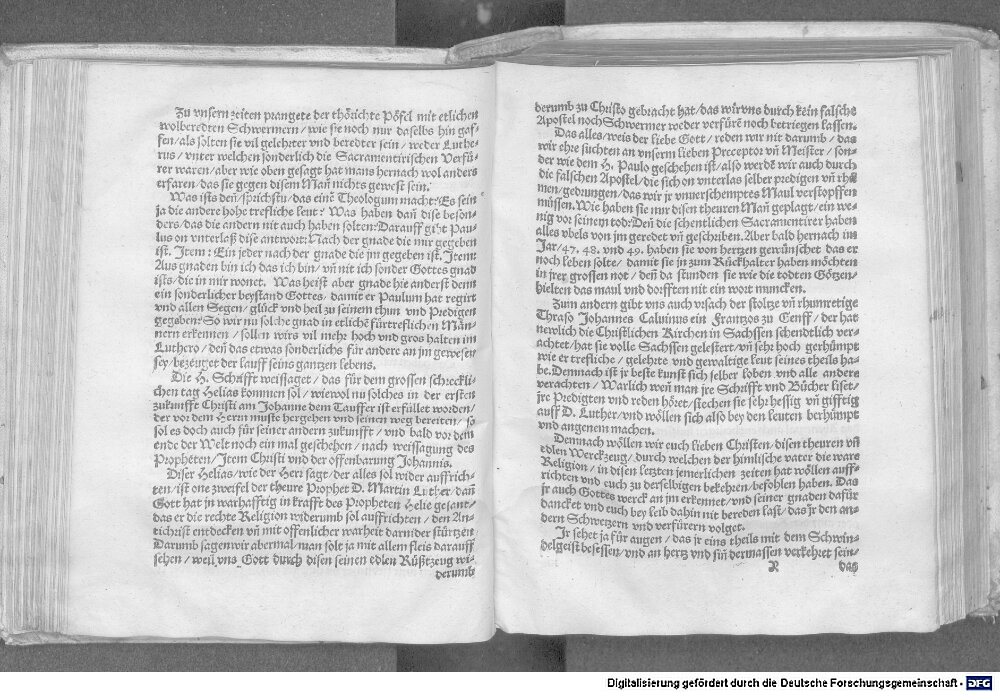 Zu vnsern zeiten prangete der thörichte Pöfel mit etlichen
wolberedten Schwermern / wie sie noch nur daselbs hin gaf-
fen / als solten sie vil gelehrter vnd beredter sein / weder Luthe-
rus / vnter welchen sonderlich die Sacramentirischen Verfü-
rer waren / aber wie oben gesagt hat mans hernach wol anders
erfaren / das sie gegen disem Mañ nichts gewest sein.
Was ists deñ / sprichstu / das eine͂ Theologum macht: Es sein
ja die andere hohe trefliche leut: Was haben dañ dise beson-
ders / das die andern nit auch haben solten: Darauff gibt Pau-
lus on vnterlaß dise antwort: Nach der gnade die mir gegeben
ist. Item: Ein jeder nach der gnade die jm gegeben ist. Item:
Aus gnaden bin ich das ich bin / vñ nit ich sonder Gottes gnad
ists / die in mir wonet. Was heist aber gnade hie anderst denn
ein sonderlicher beystand Gottes / damit er Paulum hat regirt
vnd allen Segen / glück vnd heil zu seinem thun vnd Predigen
gegeben: So wir nu solche gnad in etliche͂ fürtreflichen Män-
nern erkennen / sollen wirs vil mehr hoch vnd gros halten im
Luthero / deñ das etwas sonderlichs für andere an jm gewesen
sey / bezeuget der lauff seins gantzen lebens.
Die H. Schrifft weissaget / das für dem grossen schreckli-
chen tag Helias kommen sol / wiewol nu solches in der ersten
zukunfft Christi am Johanne dem Tauffer ist erfüllet worden /
der vor dem Herrn muste hergehen vnd seinen weg bereiten / so
sol es doch auch für seiner andern zukunfft / vnd bald vor dem
ende der Welt noch ein mal geschehen / nach weissagung des
Propheten / Item Christi vnd der offenbarung Johannis.
Diser Helias / wie der Herr sagt / der alles sol wider auffrich-
ten / ist one zweifel der theure Prophet D. Martin Luther / dañ
Gott hat jn warhafftig in krafft des Propheten Helie gesant /
das er die rechte Religion widerumb sol auffrichten / den An-
tichrist entdecken vñ mit offenlicher warheit darnider stürtzen.
Darumb sagen wir abermal / man solt ja mit allem fleis darauff
sehen / weil vns Gott durch disen seinen edlen Rüstzeug wi-
derumb
derumb zu Christo gebracht hat / das wir vns durch kein falsche
Apostel noch Schwermer weder verfüre͂ noch betriegen lassen.
Das alles / weis der liebe Gott / reden wir nit darumb / das
wir ehre suchten an vnserm lieben Preceptor vñ Meister / son-
der wie dem H. Paulo geschehen ist / also werde͂ wir auch durch
die falschen Apostel / die sich on vnterlas selber predigen vñ rhü-
men / gedrungen / das wir jr vnuerschemptes Maul verstopffen
müssen. Wie haben sie nur disen theuren Mañ geplagt / ein we-
nig vor seinem tod: Deñ die schentlichen Sacramentirer haben
alles vbels von jm geredet vñ geschriben. Aber bald hernach im
Jar / 47. 48. vnd 49. haben sie von hertzen gewünschet das er
noch leben solte / damit sie jn zum Rückhalter haben möchten
in jrer grossen not / deñ da stunden sie wie die todten Götzen /
hielten das maul vnd dorfften nit ein wort muncken.
Zum andern gibt vns auch vrsach der stoltze vñ rhumretige
Thraso Johannes Calvinus ein Frantzos zu Genff / der hat
newlich die Christlichen Kirchen in Sachssen schendtlich ver-
achtet / hat sie volle Sachssen gelestert / vñ sehr hoch gerhümpt
wie er trefliche / gelehrte vnd gewaltige leut seines theils ha-
be. Demnach ist jr beste kunst sich selber loben vnd alle andere
verachten / Warlich wen͂ man jre Schrifft vnd Bücher liset /
jre Predigten vnd reden höret / stechen sie sehr hessig vñ gifftig
auff D. Luther / vnd wöllen sich also bey den leuten berhümpt
vnd angenem machen.
Demnach wöllen wir euch lieben Christen / disen theuren vñ
edlen Werckzeug / durch welchen der himlische vater die ware
Religion / in disen letzten jemerlichen zeiten hat wöllen auff-
richten vnd euch zu derselbigen bekehren / befohlen haben. Das
jr auch Gottes werck an jm erkennet / vnd seiner gnaden dafür
dancket vnd euch bey leib dahin nit bereden last / das jr den an-
dern Schweizern vnd verfürern volget.
Jr sehet ja für augen / das jr eins theils mit dem Schwin-
delgeist besessen / vnd an hertz vnd siñ dermassen verkehret sein /
R das
Digitalisierung gefördert durch die Deutsche Forschungsgemeinschaft - DFG